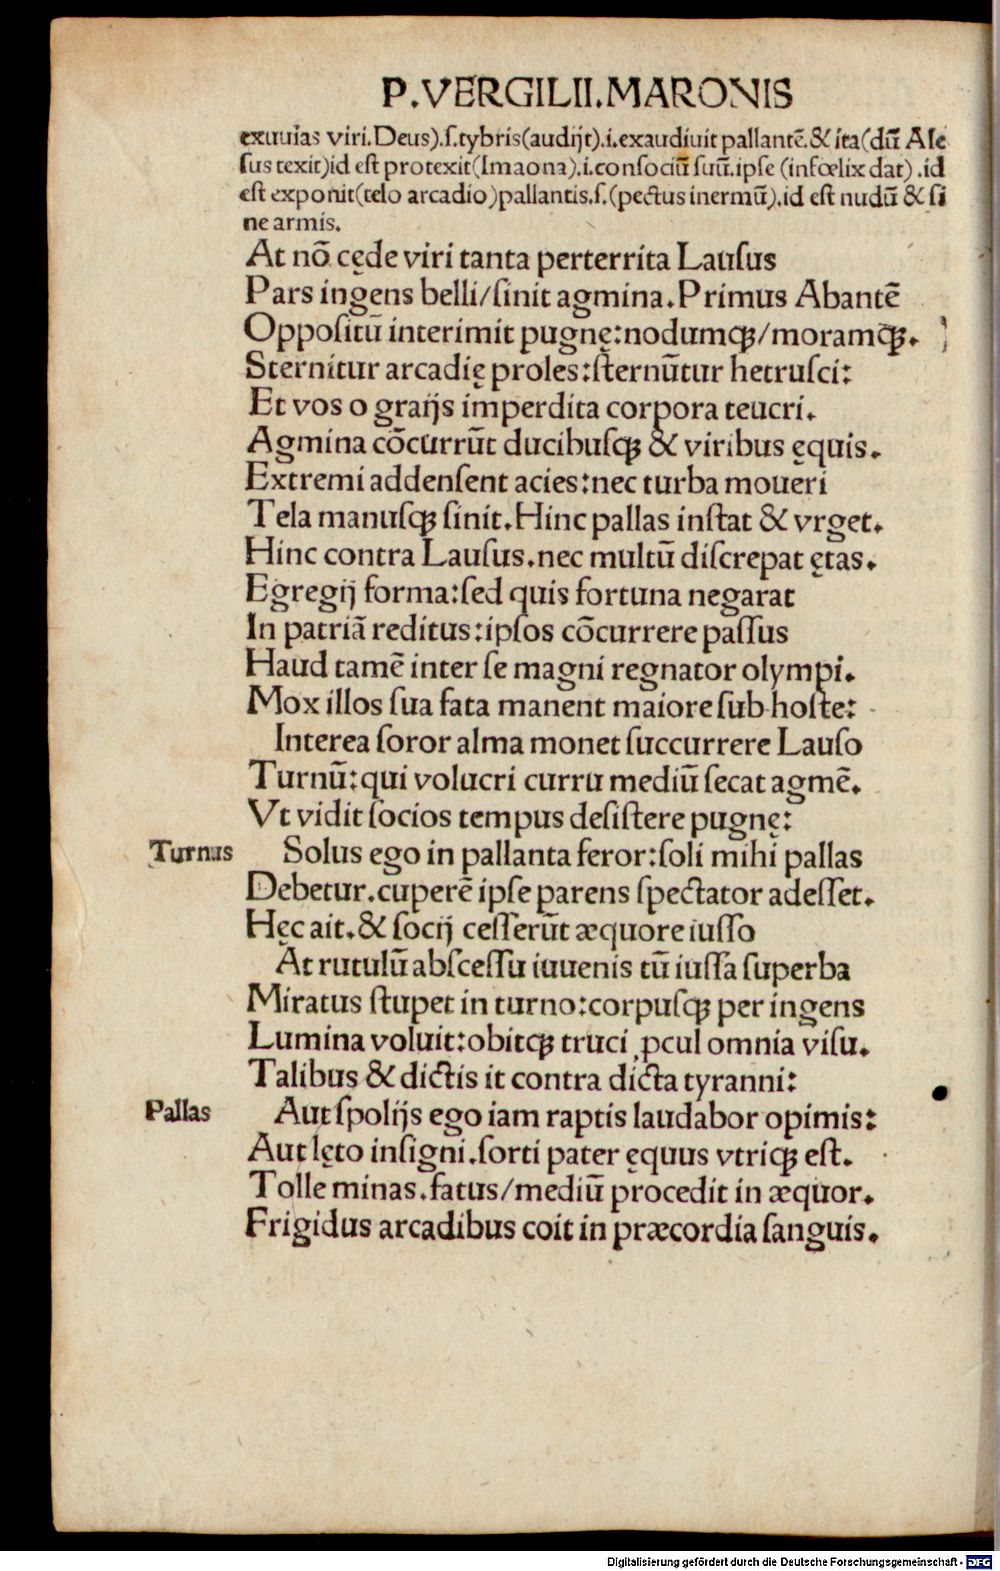 P.VERGILII.MARONIS
exuuias viri.Deus).ſ.tybris(audijt).i.exaudiuit pallantē.& ita(dū Ale
ſus texit)id eſt protexit(Imaona).i.conſociū ſuū.ipſe (infœlix dat) .id
eſt exponit(telo arcadio)pallantis.ſ.(pectus inermū).id eſt nudū & ſi
ne armis.
At nō cęde viri tanta perterrita Lauſus
Pars ingens belli/ſinit agmina.Primus Abantē
Oppoſitū interimit pugnę:nodumqꝫ/moramqꝫ.
Sternitur arcadię proles:ſternūtur hetruſci:
Et vos o graijs imperdita corpora teucri.
Agmina cōcurrūt ducibuſqꝫ & viribus ęquis.
Extremi addenſent acies:nec turba moueri
Tela manuſqꝫ ſinit.Hinc pallas inſtat & vrget.
Hinc contra Lauſus.nec multū diſcrepat ętas.
Egregij forma:ſed quis fortuna negarat
In patriā reditus:ipſos cōcurrere paſſus
Haud tamē inter ſe magni regnator olympi.
Mox illos ſua fata manent maiore ſub hoſte:
Interea ſoror alma monet ſuccurrere Lauſo
Turnū:qui volucri curru mediū ſecat agmē.
Vt vidit ſocios tempus deſiſtere pugnę:
Turnus Solus ego in pallanta feror:ſoli mihi pallas
Debetur.cuperē ipſe parens ſpectator adeſſet.
Hęc ait.& ſocij ceſſerūt æquore iuſſo
At rutulū abſceſſu iuuenis tū iuſſa ſuperba
Miratus ſtupet in turno:corpuſqꝫ per ingens
Lumina voluit:obitqꝫ truci ꝓcul omnia viſu.
Talibus & dictis it contra dicta tyranni:
Pallas Aut ſpolijs ego iam raptis laudabor opimis:
Aut lęto inſigni.ſorti pater ęquus vtriqꝫ eſt.
Tolle minas.fatus/mediū procedit in æquor.
Frigidus arcadibus coit in præcordia ſanguis.
Digitalisierung gefördert durch die Deutsche Forschungsgemeinschaft - DFG